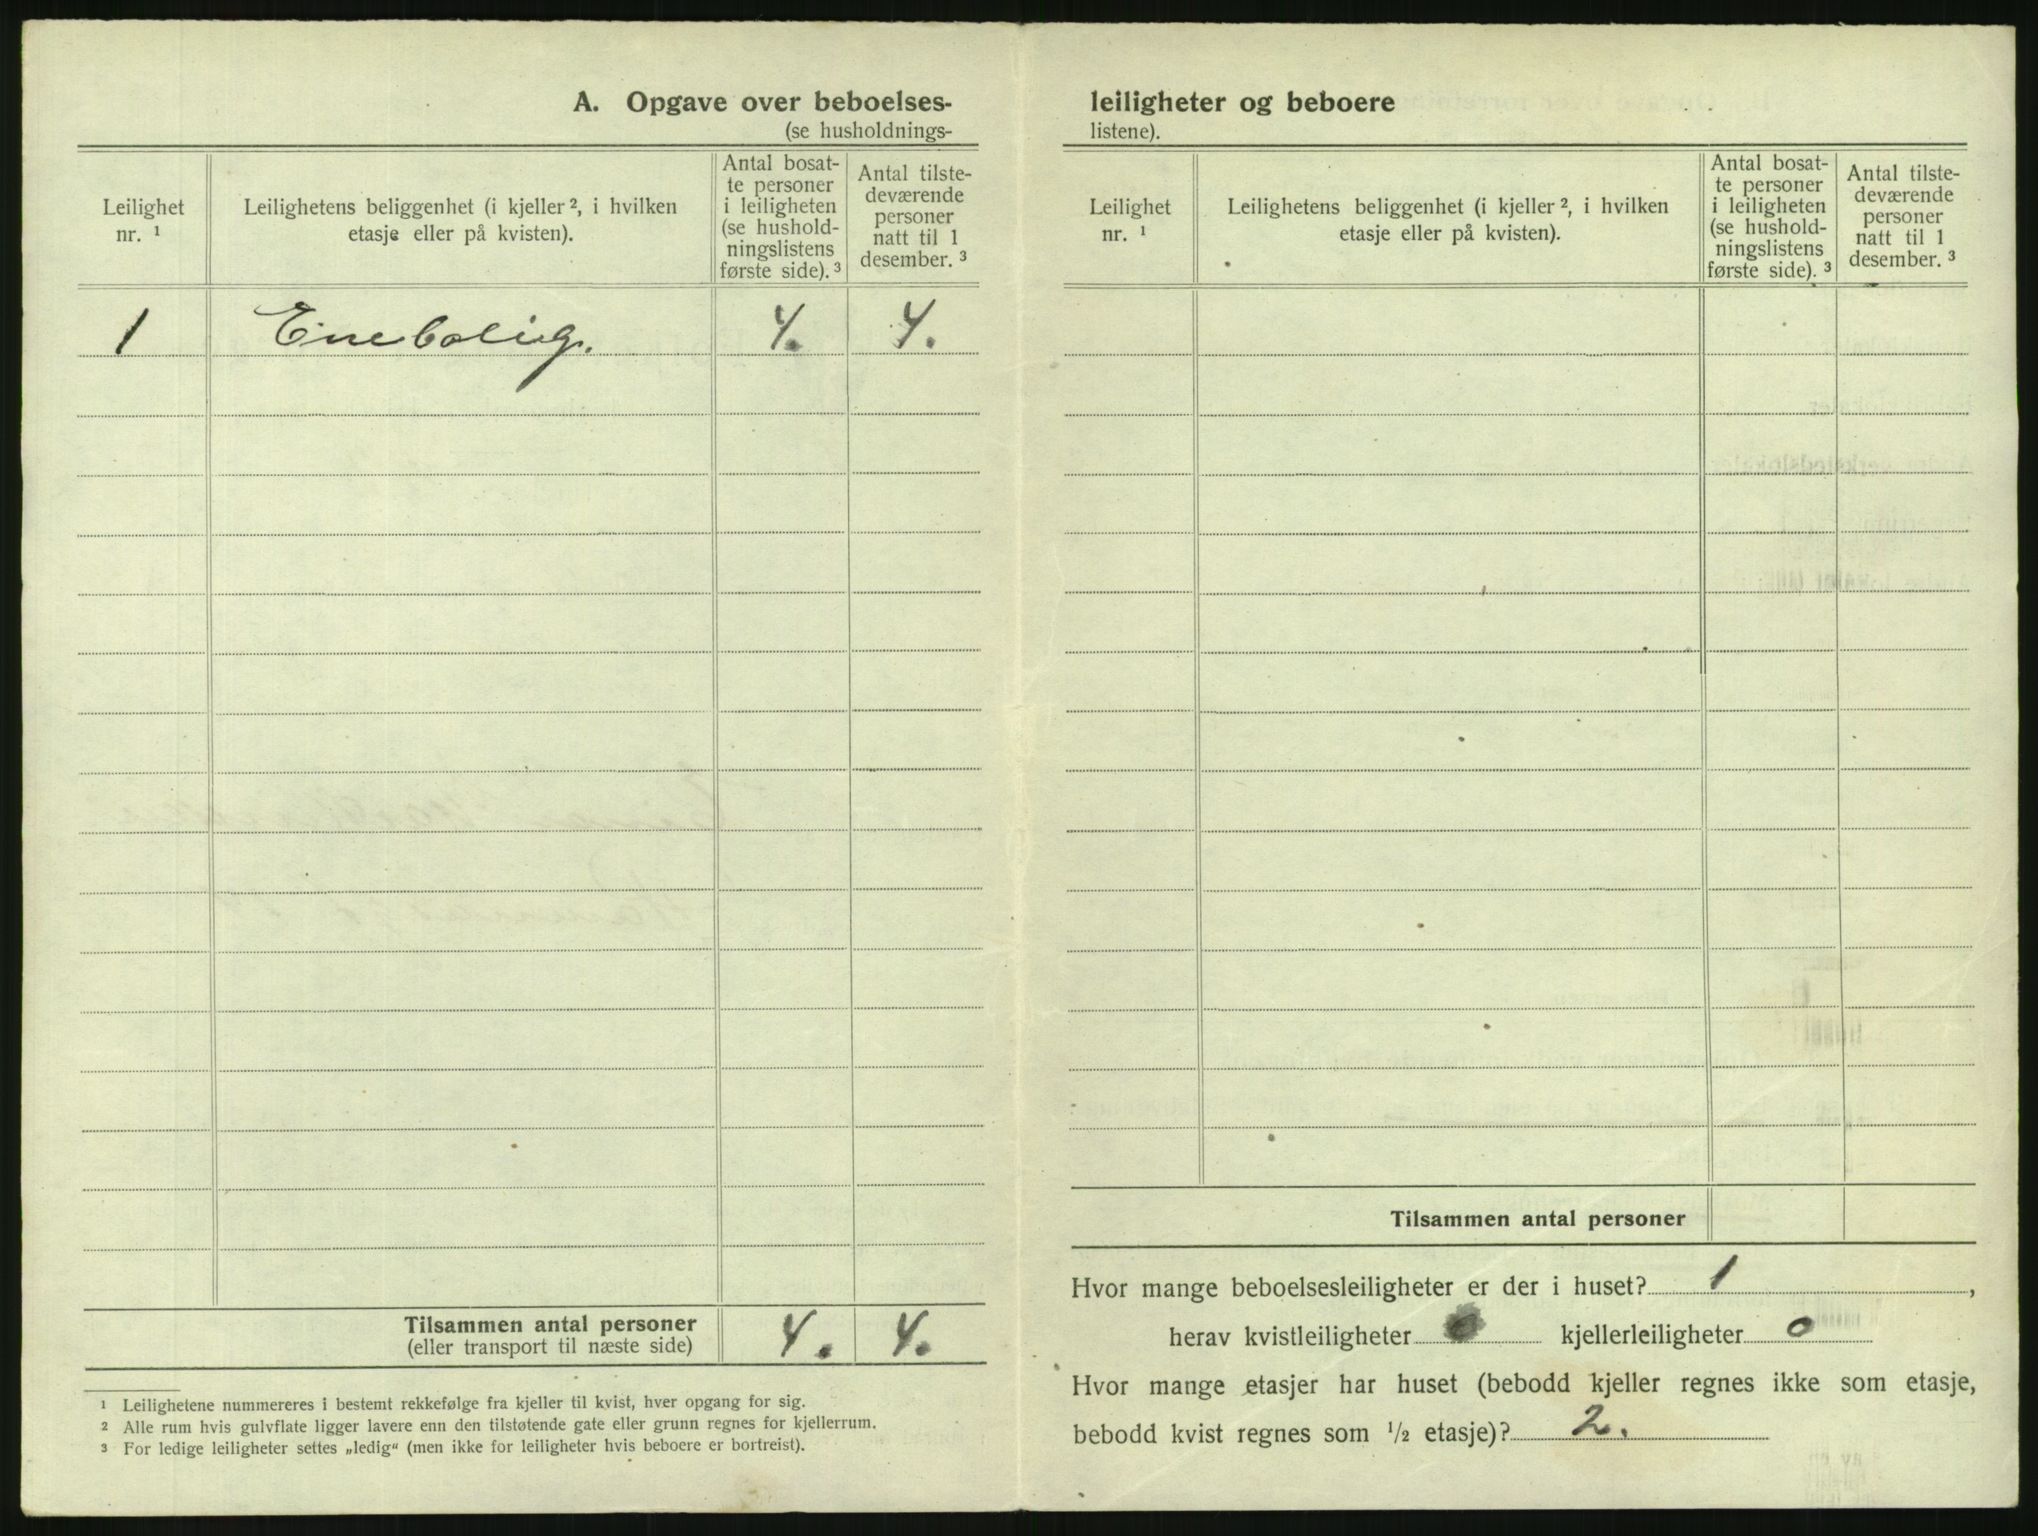 A. Opgave over beboelses-
(se husholdnings-
Leilighet
nr. 1
Leilighetens beliggenhet (i kjeller 2, i hvilken
etasje eller på kvisten).
Antal bosat-
te personer
i leiligheten
(se hushold-
ningslistens
første side). 3
Antal tilste-
deværende
personer
natt til 1
desember. 3
1 Enebolig. 4. 4.
Tilsammen antal personer 4. 4.
(eller transport til næste side)
1 Leilighetene nummereres i bestemt rekkefølge fra kjeller til kvist, hver opgang for sig.
2 Alle rum hvis gulvflate ligger lavere enn den tilstøtende gate eller grunn regnes for kjellerrum.
3 For ledige leiligheter settes „ledig“ (men ikke for leiligheter hvis beboere er bortreist).
leiligheter og beboere
listene).
Leilighet
nr. 1
Leilighetens beliggenhet (i kjeller 2, i hvilken
etasje eller på kvisten).
Antal bosat-
te personer
i leiligheten
(se hushold-
ningslistens
første side). 3
Antal tilste-
deværende
personer
natt til 1
desember. 3
Tilsammen antal personer
Hvor mange beboelsesleiligheter er der i huset? 1,
herav kvistleiligheter 0 kjellerleiligheter 0
Hvor mange etasjer har huset (bebodd kjeller regnes ikke som etasje,
bebodd kvist regnes som 1/2 etasje)? 2.